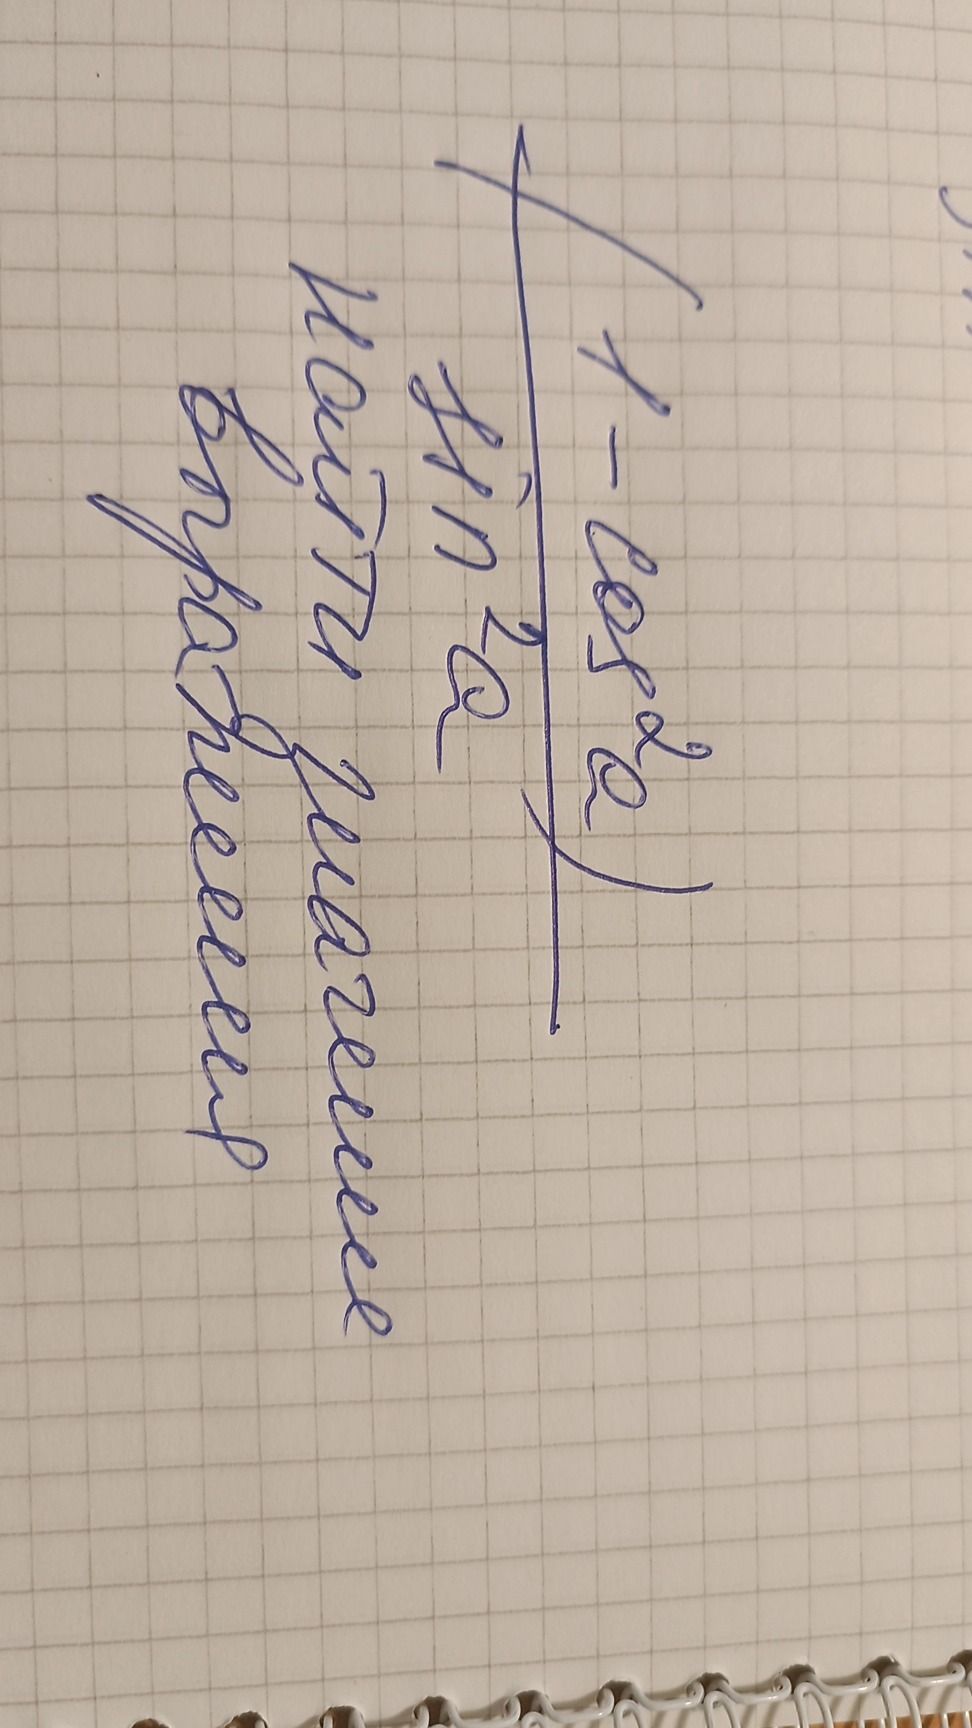 (1 - cos²a)
sin²a
Найти значение
выражения